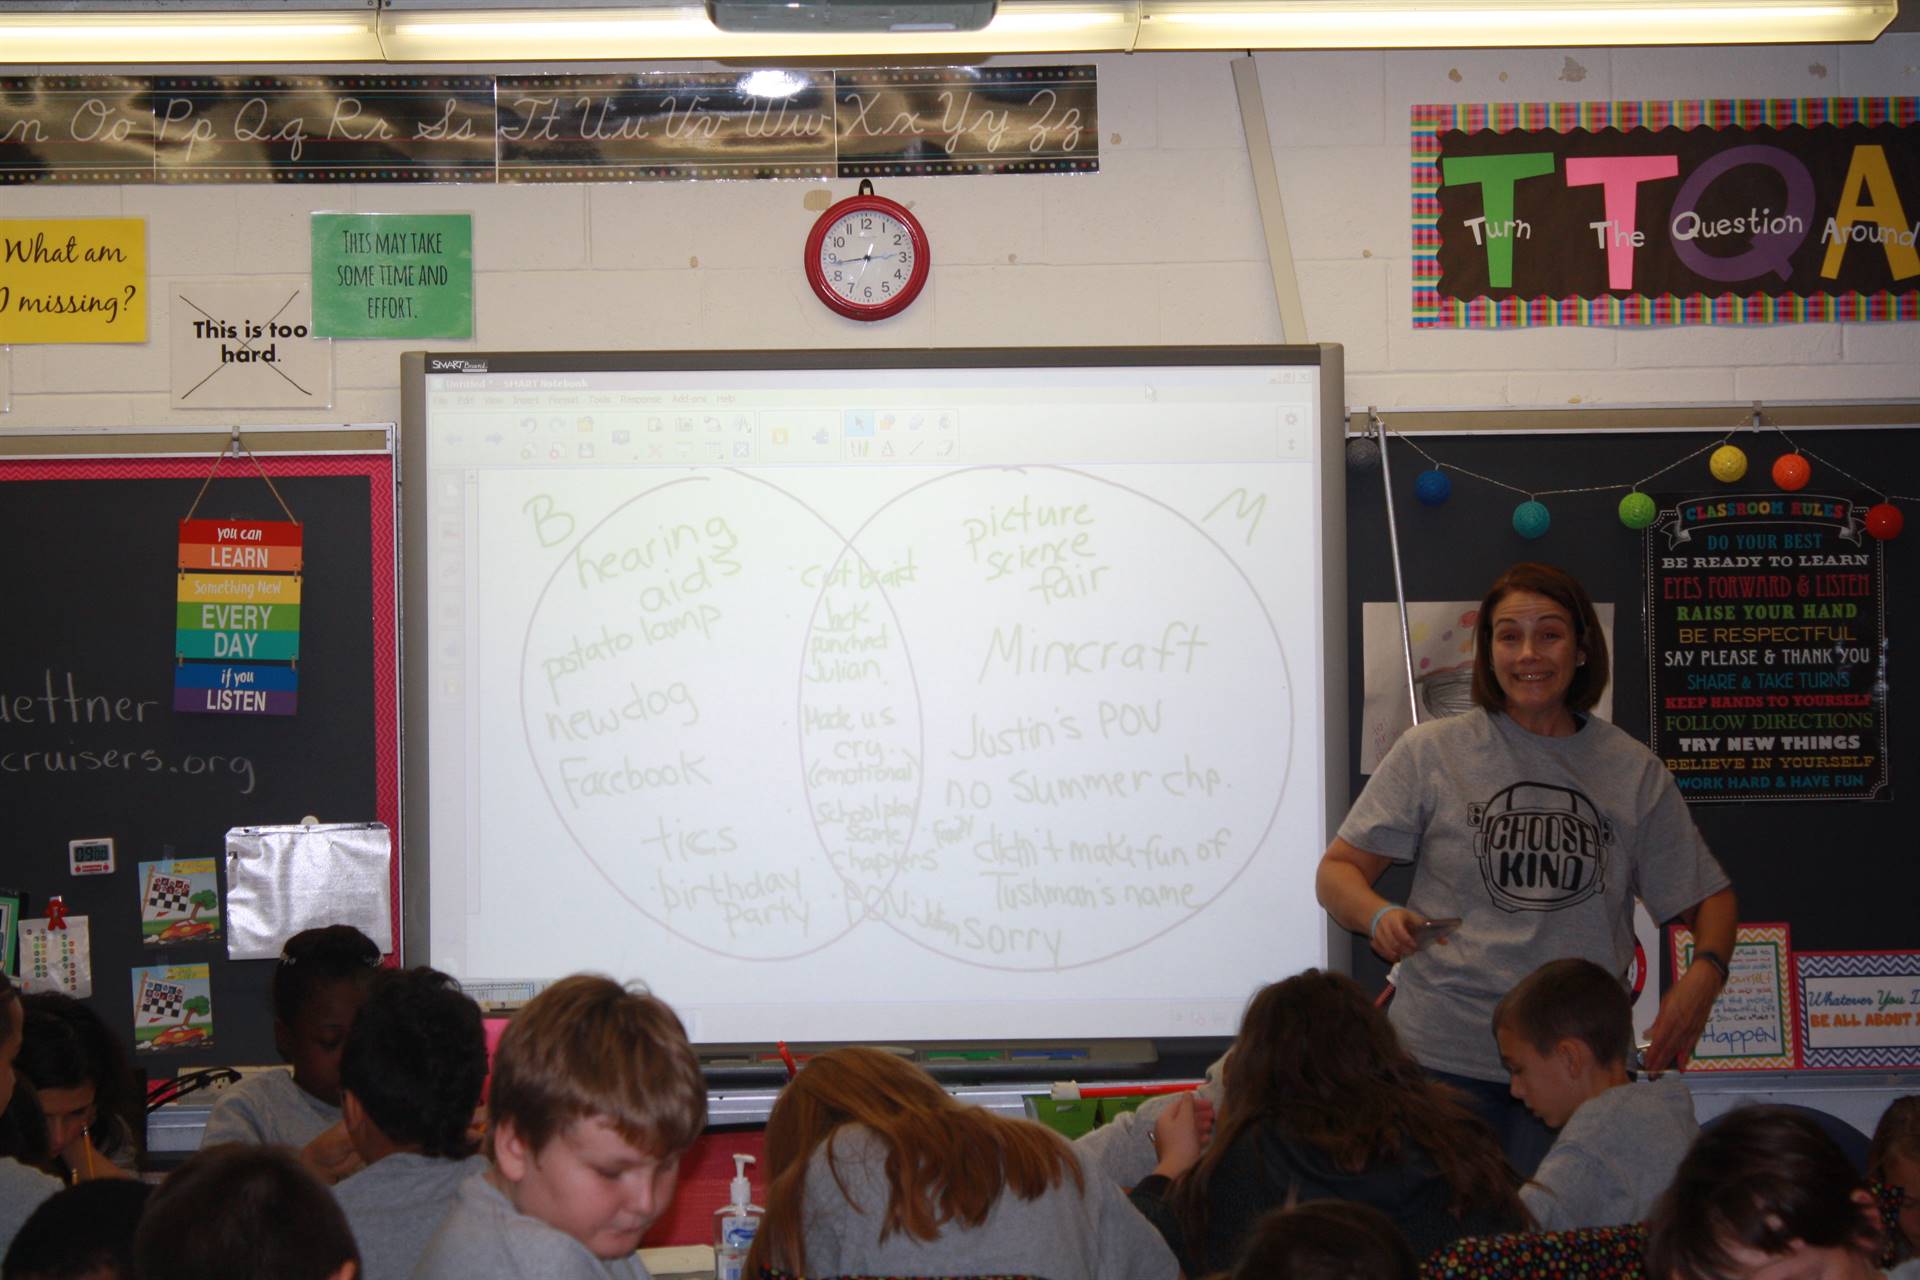 n Oo Pp Qq Rr Ss Tt Uu Vv Ww Xx Yy Zz
What am
I missing?
This is too
hard.
THIS MAY TAKE
SOME TIME AND
EFFORT.
12
11
10
9
8
7
6
5
4
3
2
1
T T Q A
Turn The Question Around
SMART Board
Untitled * - SMART Notebook
File Edit View Insert Format Tools Response Add-ons Help
B
hearing
aids
potato lamp
new dog
Facebook
tics
birthday
party
cut braid
Jack
punched
Julian
Made us
cry
(emotional)
School play
chapters
POV
M
picture
science
fair
Minecraft
Justin's POV
no Summer chp.
didn't make fun of
Tushman's name
Sorry
you can
LEARN
Something New
EVERY
DAY
if you
LISTEN
uettner
cruisers.org
CLASSROOM RULES
DO YOUR BEST
BE READY TO LEARN
EYES FORWARD & LISTEN
RAISE YOUR HAND
BE RESPECTFUL
SAY PLEASE & THANK YOU
SHARE & TAKE TURNS
KEEP HANDS TO YOURSELF
FOLLOW DIRECTIONS
TRY NEW THINGS
BELIEVE IN YOURSELF
WORK HARD & HAVE FUN
CHOOSE
KIND
Happen
Whatever You D
BE ALL ABOUT